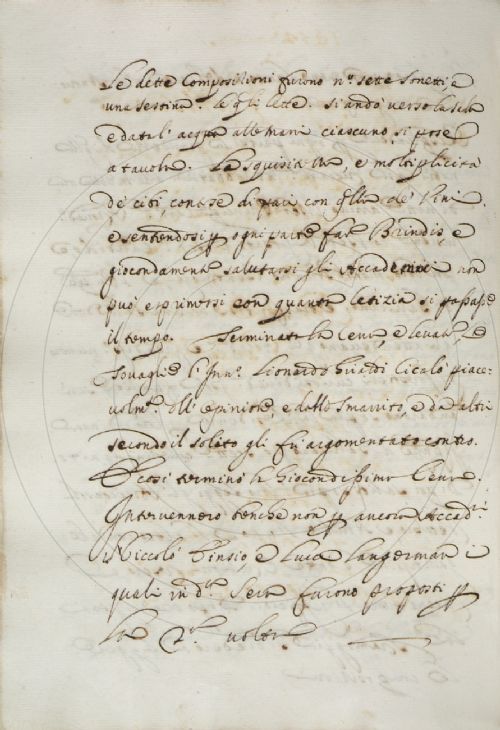 Le dette Composizioni furono n.º sette sonetti, e
una sestina. le q.li lette. si andò verso la sala
e data l'acqua alle mani ciascuno si pose
a tavola. La squisitezza, e moltiplicità
de' cibi, contese di pari con q.lla de' Vini
e sentendosi p ogni parte far Brindis, e
giocondamente salutarsi gli Accademici non
può esprimersi con quanta letizia si passasse
il tempo. Terminata la Cena, e levate, le
Tovaglie l' Inn.º Lionardo Giraldi Cicalò piace-
volm.te e dallo Smarrito, e da altri
secondo il solito gli fu argomentato contro.
E così terminò la Giocondissima Cena.
Intervennero benche non p ancora Accad.i
Niccolò e Luca Langerman i
quali in d.a Sera furono proposti p
la p.a volta